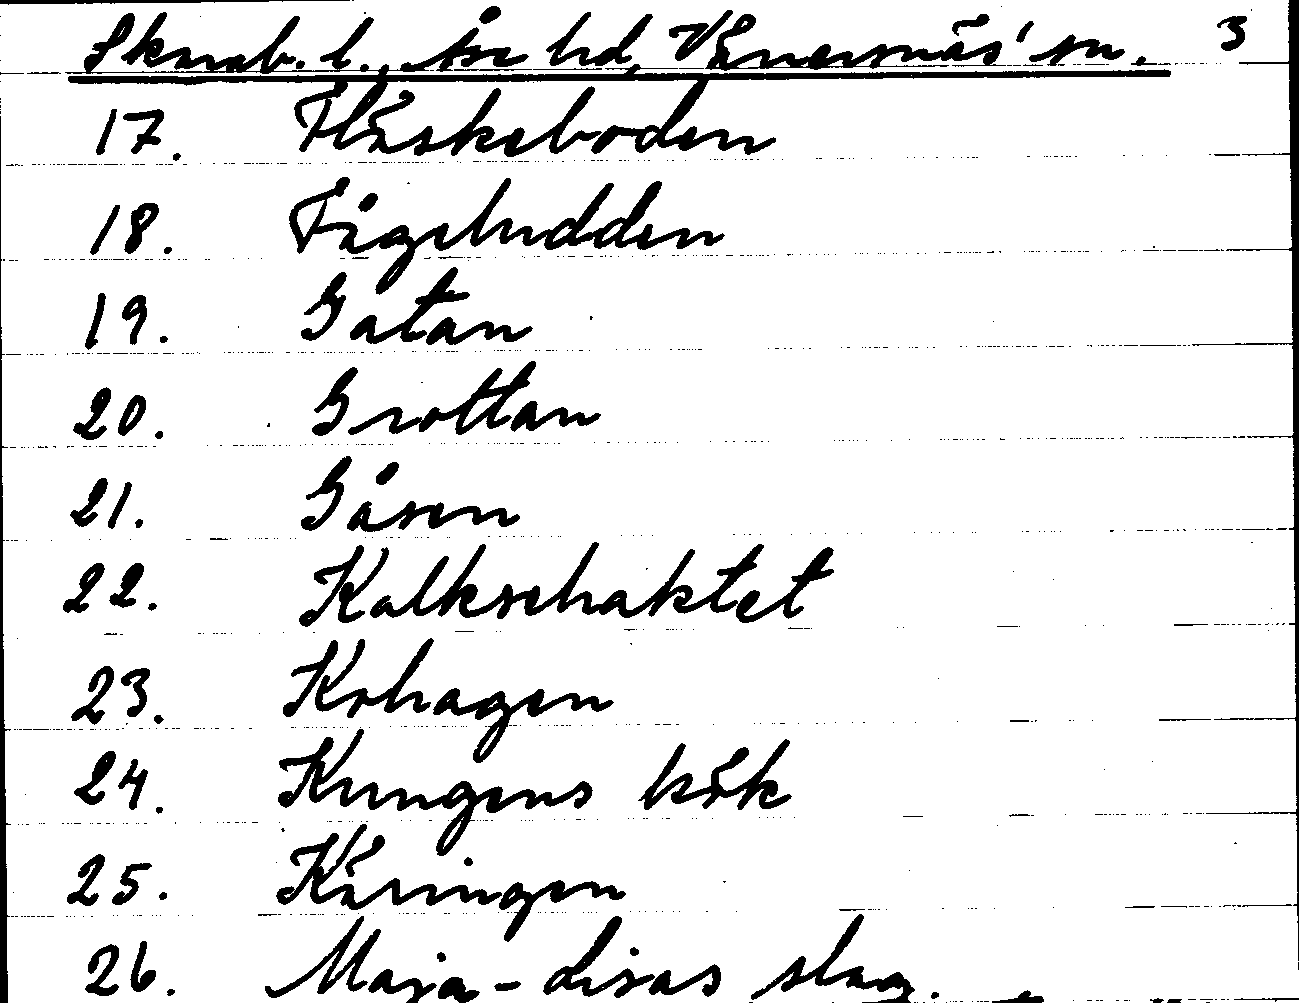 Skarab. l., Åse hd, Vänersnäs' sn. 3
17. Fläskeboden
18. Fågeludden
19. Gatan
20. Grottan
21. Gåsen
22. Kalkschaktet
23. Kohagen
24. Kungens kök
25. Käringen
26. Maja-Lisas slag.